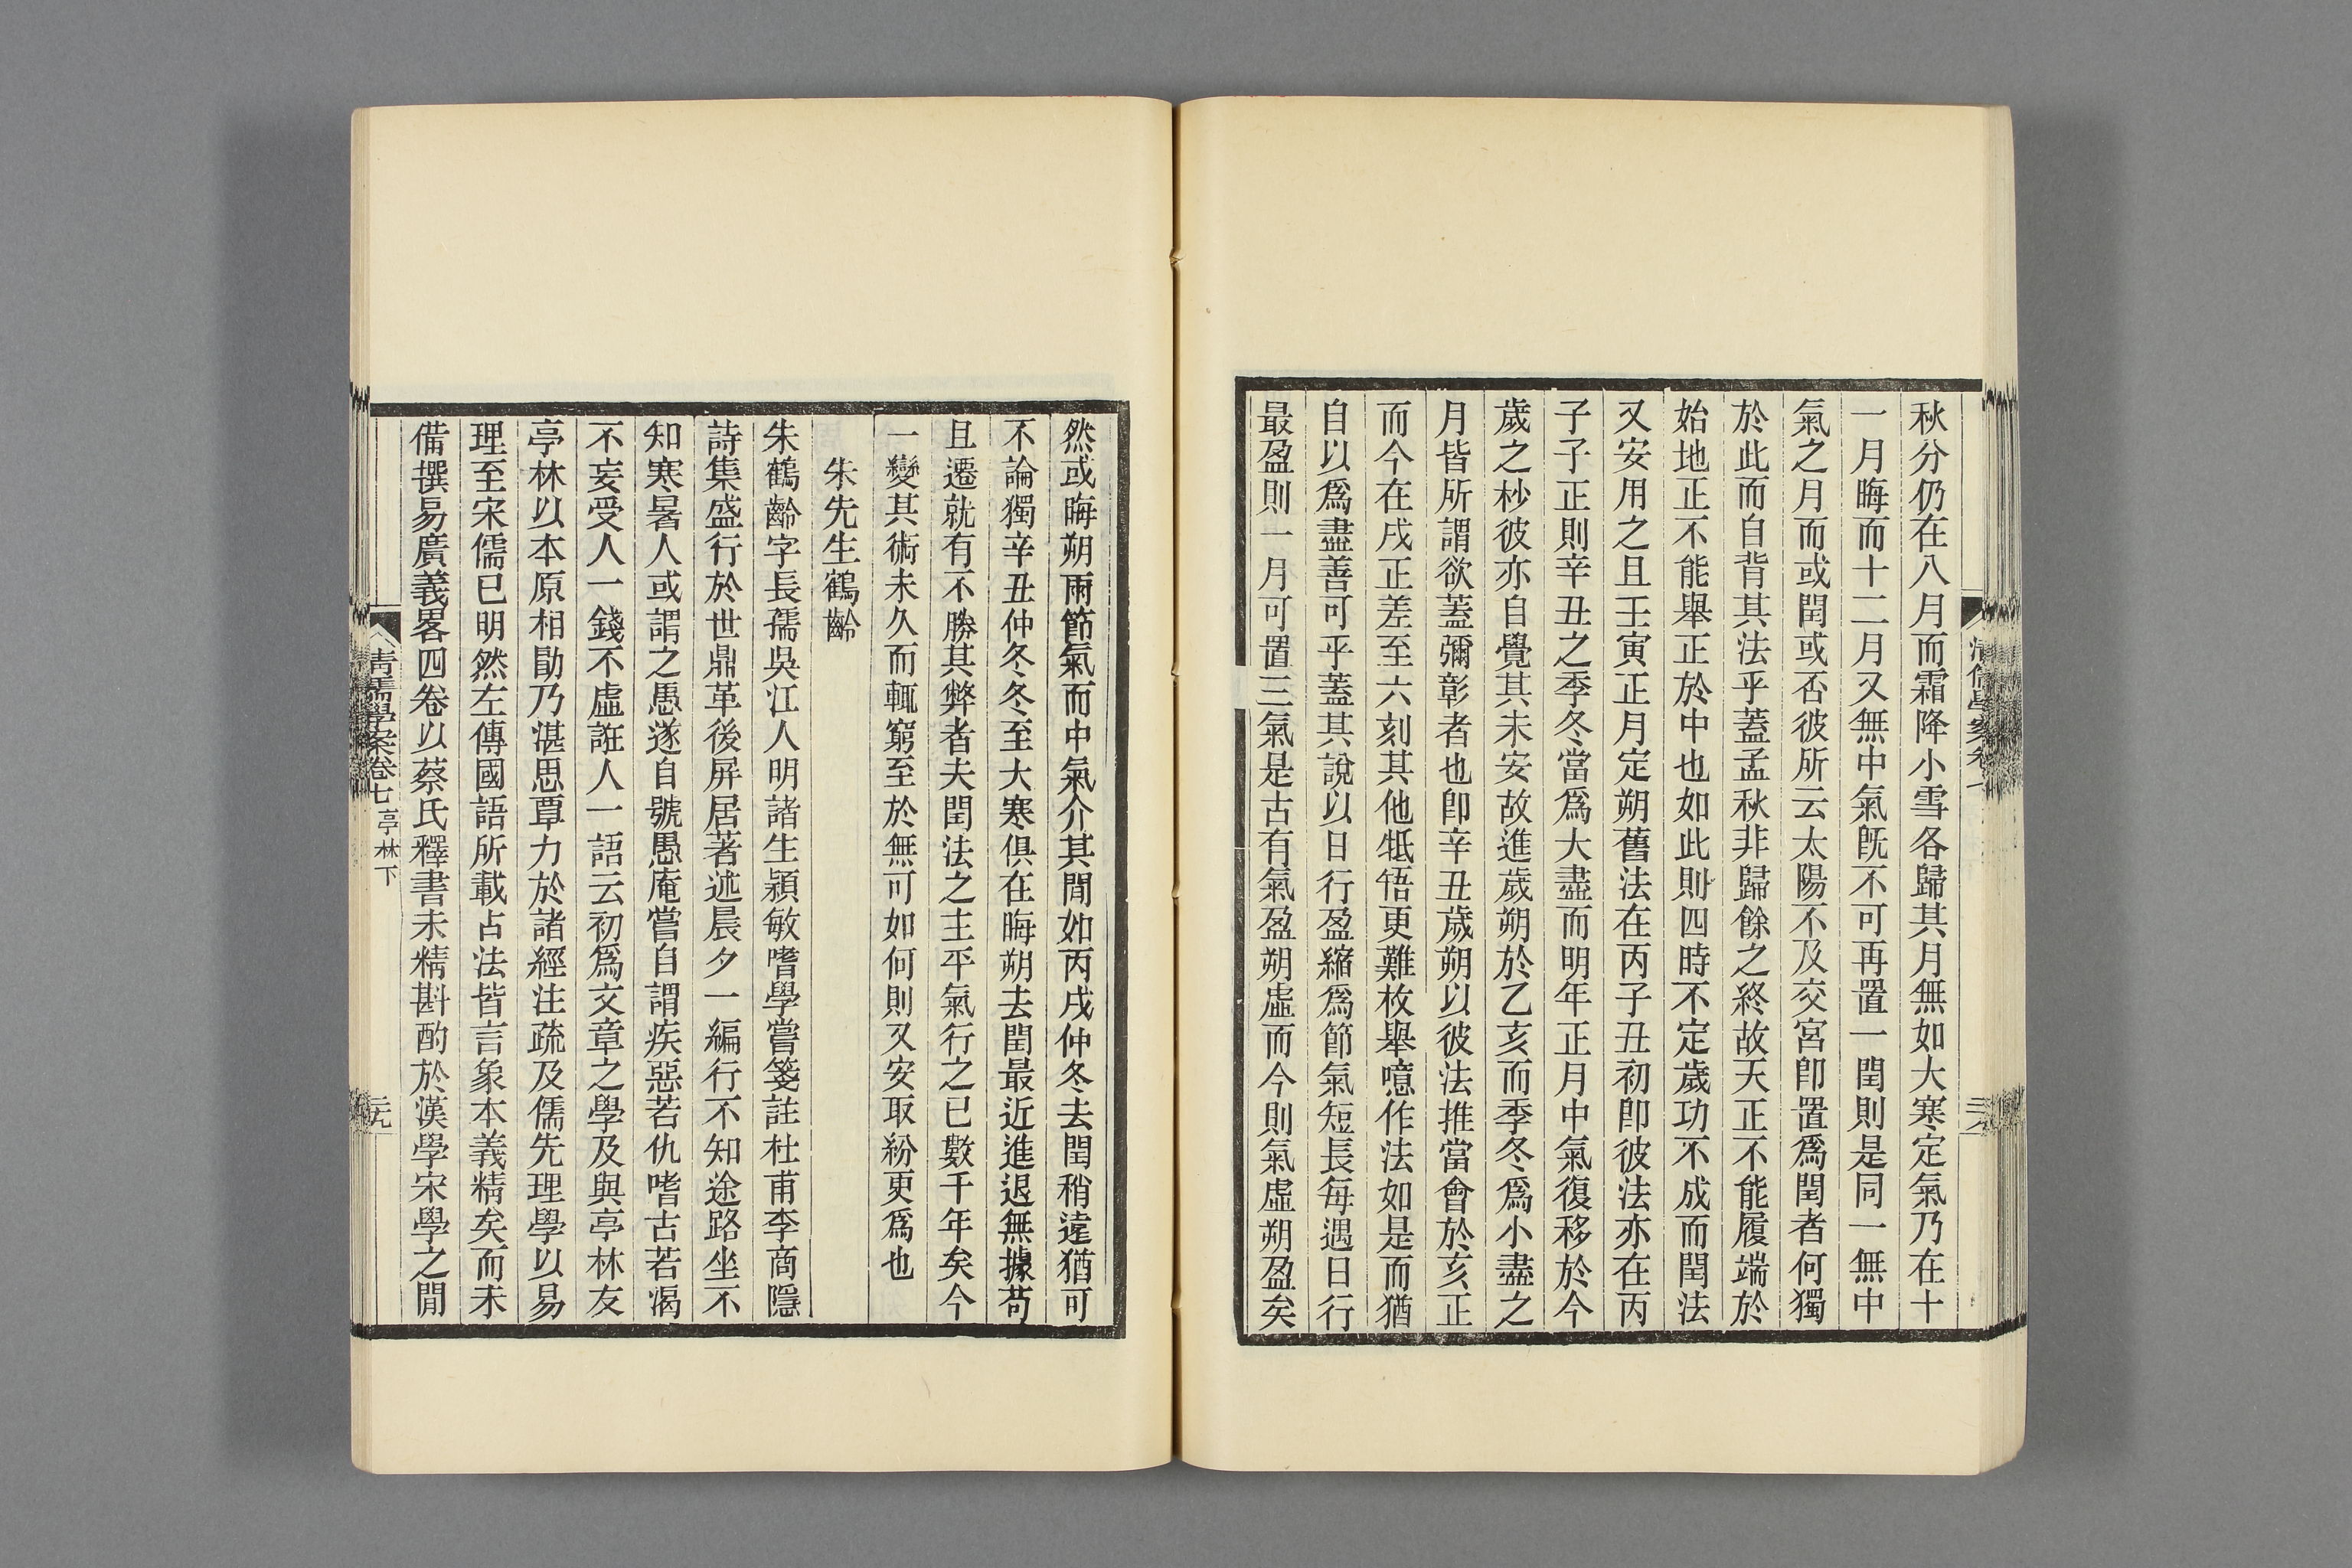 秋分仍在八月而霜降小雪各歸其月無如大寒定氣乃在十
一月晦而十二月又無中氣既不可再置一閏則是同一無中
氣之月而或閏或否彼所云太陽不及交宮卽置爲閏者何獨
於此而自背其法乎蓋孟秋非歸餘之終故天正不能履端於
始地正不能舉正於中也如此則四時不定歲功不成而閏法
又安用之且壬寅正月定朔舊法在丙子丑初卽彼法亦在丙
子子正則辛丑之季冬當爲大盡而明年正月中氣復移於今
歲之杪彼亦自覺其未安故進歲朔於乙亥而季冬爲小盡之
月皆所謂欲蓋彌彰者也卽辛丑歲朔以彼法推當會於亥正
而今在戌正差至六刻其他牴牾更難枚舉噫作法如是而猶
自以爲盡善可乎蓋其說以日行盈縮爲節氣短長每遇日行
最盈則一月可置三氣是古有氣盈朔虛而今則氣虛朔盈矣
然或晦朔兩節氣而中氣介其間如丙戌仲冬去閏稍遠猶可
不論獨辛丑仲冬冬至大寒俱在晦朔去閏最近進退無據苟
且遷就有不勝其弊者夫閏法之主平氣行之已數千年矣今
一變其術未久而輒窮至於無可如何則又安取紛更爲也
朱先生鶴齡
朱鶴齡字長孺吳江人明諸生穎敏嗜學嘗箋註杜甫李商隱
詩集盛行於世鼎革後屏居著述晨夕一編行不知途路坐不
知寒暑人或謂之愚遂自號愚庵嘗自謂疾惡若仇嗜古若渴
不妄受人一錢不虛誑人一語云初爲文章之學及與亭林友
亭林以本原相勖乃湛思覃力於諸經注疏及儒先理學以易
理至宋儒已明然左傳國語所載占法皆言象本義精矣而未
備撰易廣義畧四卷以蔡氏釋書未精斟酌於漢學宋學之閒
清儒學案卷七 亭林下
二十九